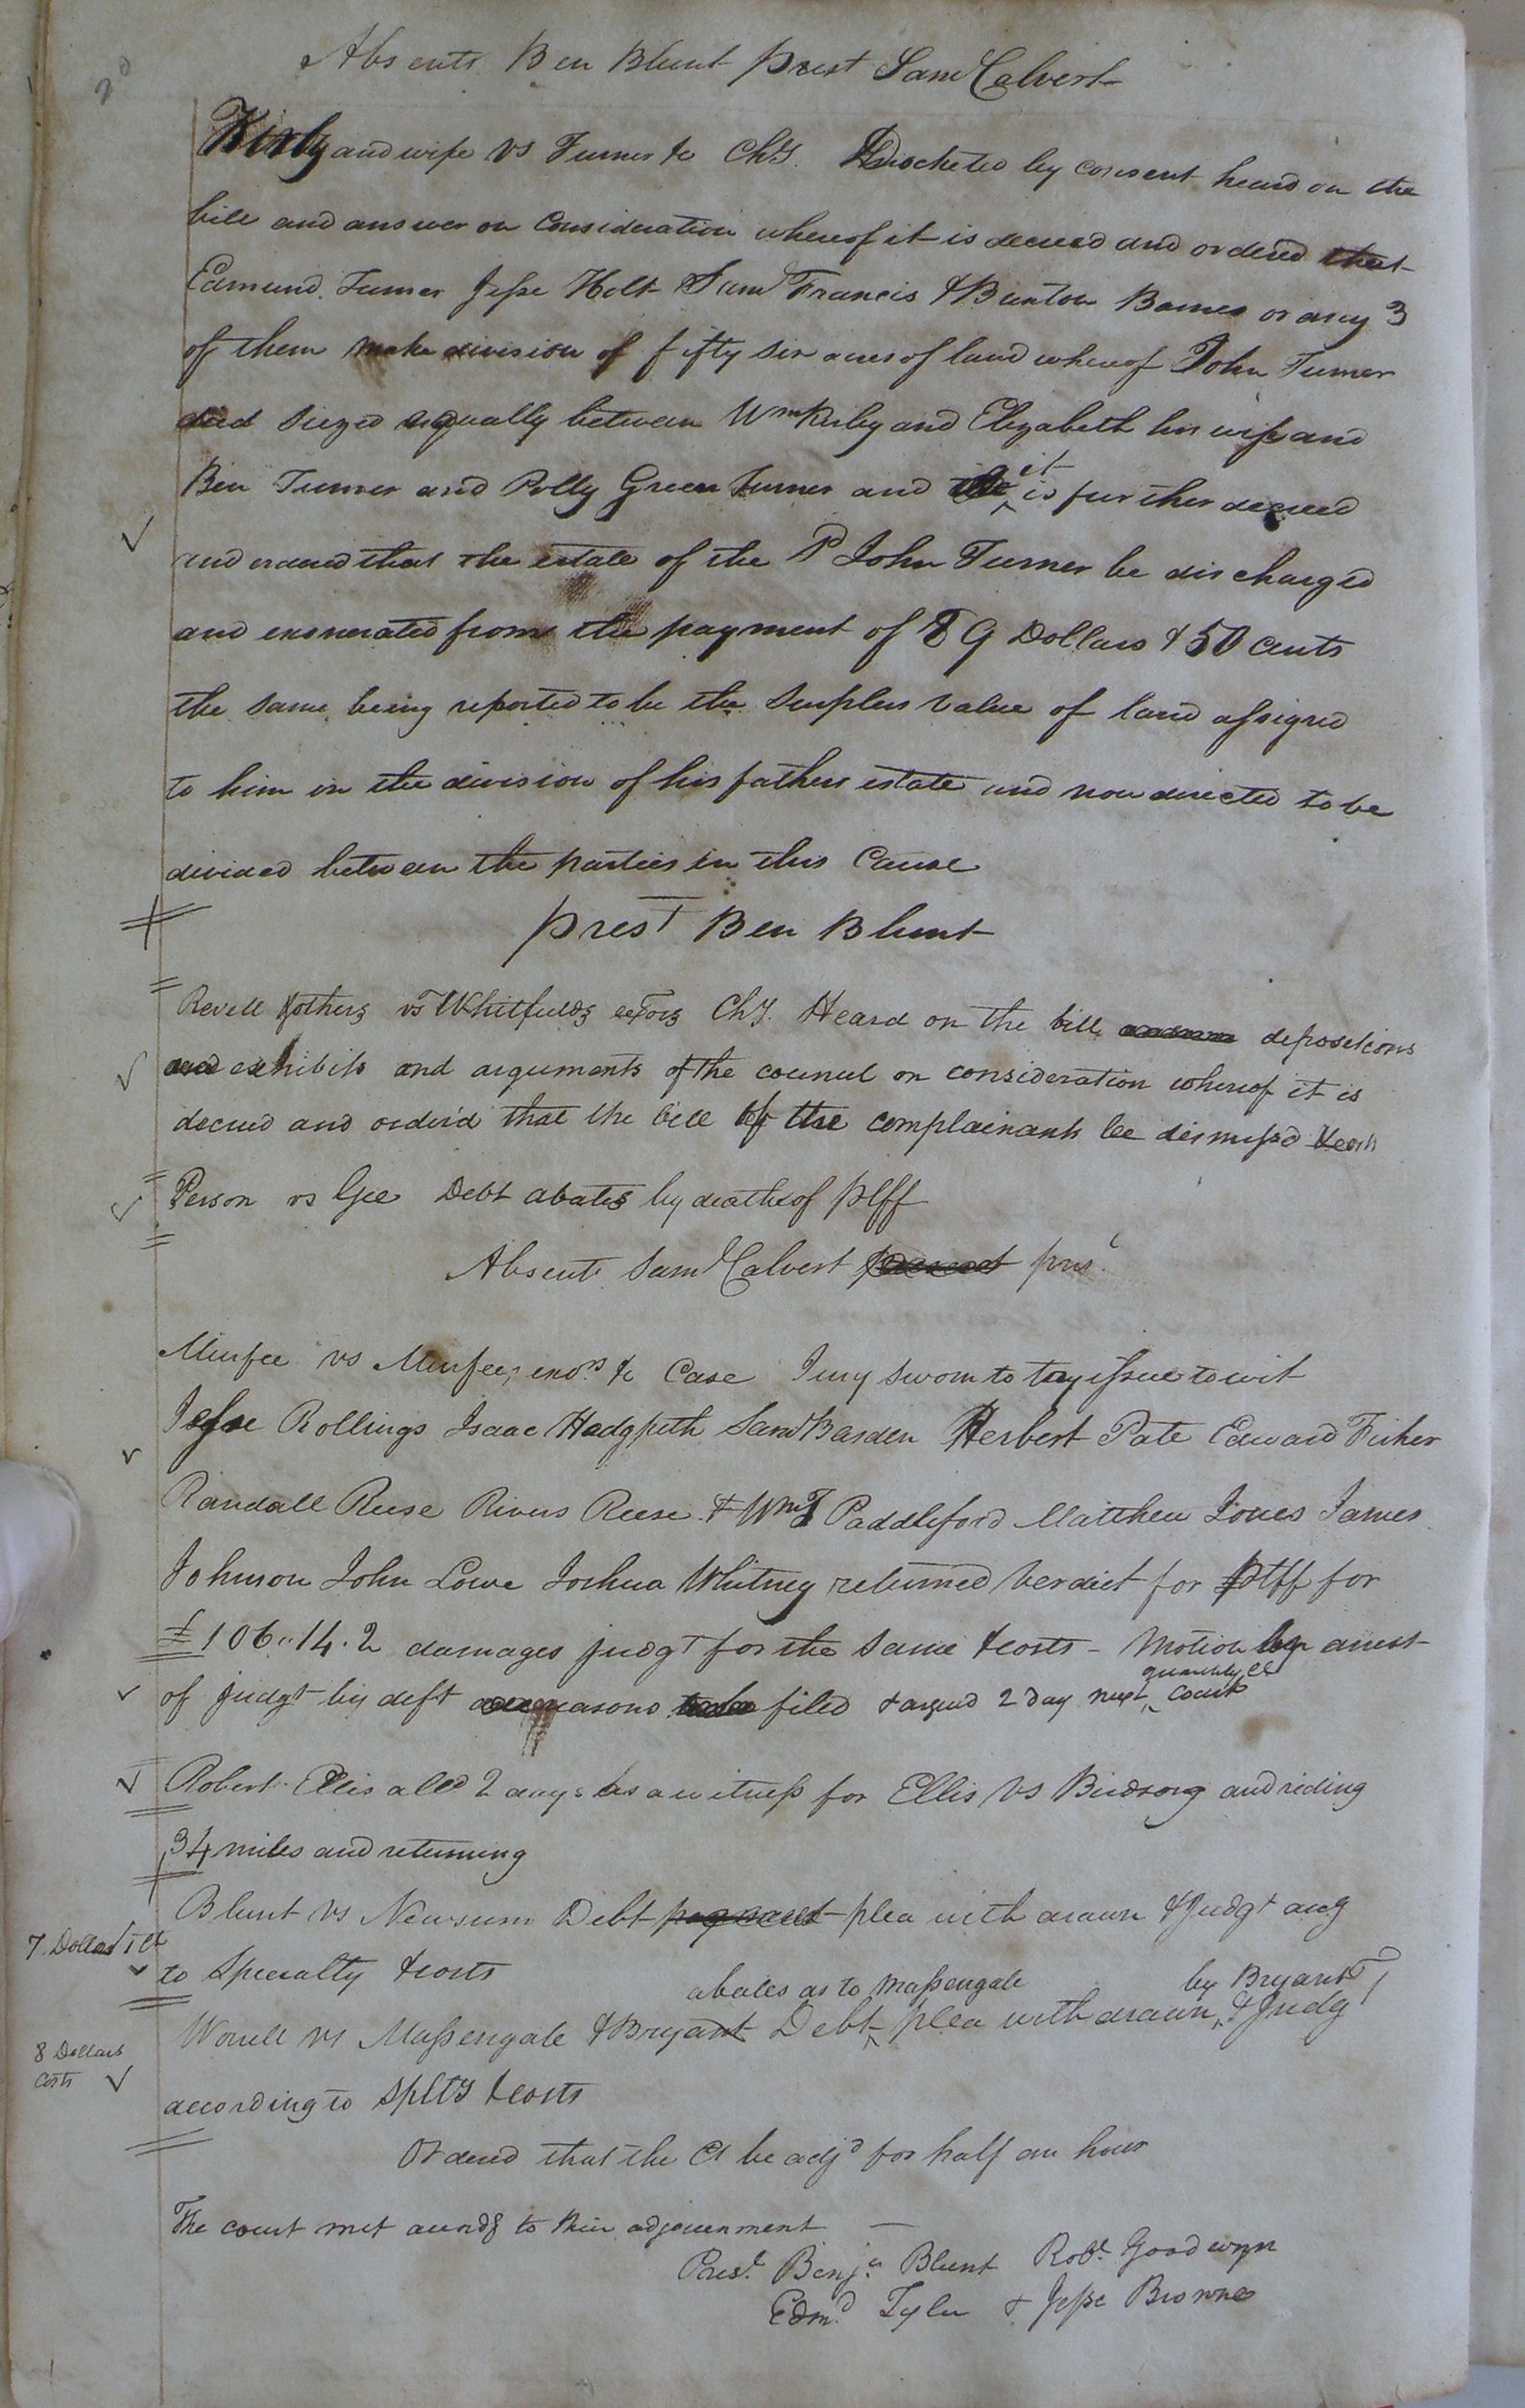 Absent Ben Blunt prest Sam Calvert
Kirby and wife vs Turner &c ChY. Docketed by consent heard on the
bill and answer on Consideration whereof it is decreed and ordered that
Edmund Turner Jesse Holt Saml Francis & Burton Barnes or any 3
of them make division of fifty six acres of land whereof John Turner
died siezed equally between Wm Kirby and Elizabeth his wife and
Ben Turner and Polly Green Turner and it is further decreed
and ordered that the estate of the sd John Turner be discharged
and exonerated from the payment of 89 Dollars & 50 cents
the same being reported to be the surplus value of land assigned
to him in the division of his fathers estate and now directed to be
divided between the parties in this Cause
prest Ben Blunt
Revell & others vs Whitfields exors ChY. Heard on the bill depositions
and exhibits and arguments of the councel on consideration whereof it is
decreed and orderd that the bill of the complainants be dismissd & costs
Person vs Gee Debt abates by death of plff
Absent Saml Calvert prest
Murfee vs Murfee, exors &c Case Jury sworn to try issue towit
Jesse Rollings Isaac Hedgpeth Saml Barden Herbert Pate Edward Fisher
Randall Reese Rivers Reese & Wm T Paddleford Matthew Jones James
Johnson John Lowe Joshua Whitney returned verdict for Pltff for
£106"14.2 damages judgt for the same & costs - Motion in arrest
of judgt by deft reasons filed & argued 2 day next quarterly court
Robert Ellis alld 2 days as a witness for Ellis vs Birdsong and riding
34 miles and returning
Blunt vs Newsum Debt payment plea withdrawn & Judgt accg
7. Dollars 1 ct
to Specialty & costs
abates as to Massengale by Bryant
Worrell vs Massengale & Bryant Debt plea withdrawn & Judgt
8 Dollars
Costs
according to Splty & costs
Ordered that the Ct be adjd for half an hour
The court met accordg to their adjournment —
Prest. Benja Blunt Robt. Goodwyn
Edmd. Tyler & Jesse Browne